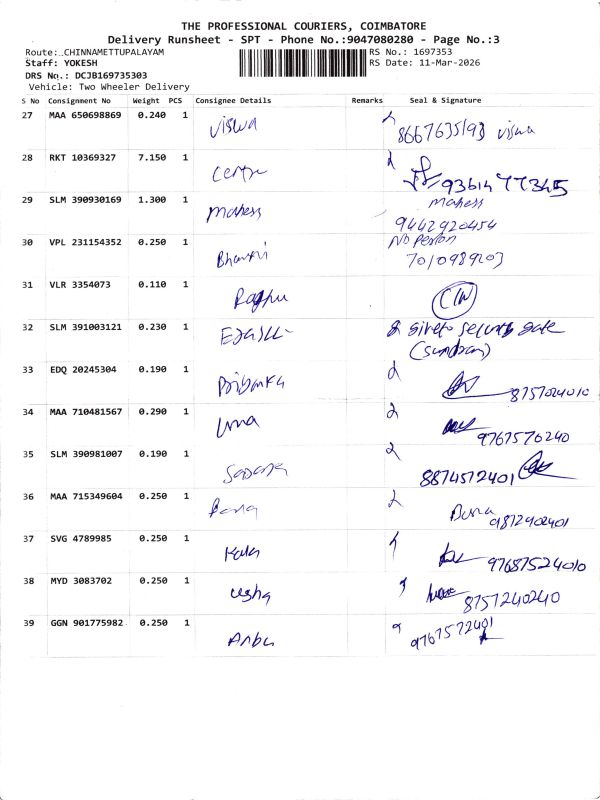 THE PROFESSIONAL COURIERS, COIMBATORE
Delivery Runsheet - SPT - Phone No.:9047080280 - Page No.:3
Route: CHINNAMETTUPALAYAM
RS No.: 1697353
Staff: YOKESH
RS Date: 11-Mar-2026
DRS No.: DCJB169735303
Vehicle: Two Wheeler Delivery
S No Consignment No Weight PCS Consignee Details Remarks Seal & Signature
27 MAA 650698869 0.240 1 Viswa 8667635193 viswa
28 RKT 10369327 7.150 1 Centre 9361477345
29 SLM 390930169 1.300 1 Mahess Mahess
9442920454
30 VPL 231154352 0.250 1 Bharthi No Person
7010989203
31 VLR 3354073 0.110 1 Raghu
32 SLM 391003121 0.230 1 Give to security gate
(Sundram)
33 EDQ 20245304 0.190 1 Priyanka 8757024010
34 MAA 710481567 0.290 1 Uma 9767576240
35 SLM 390981007 0.190 1 8874572401
36 MAA 715349604 0.250 1 9872902401
37 SVG 4789985 0.250 1 Kala 97687524010
38 MYD 3083702 0.250 1 Usha 8757240240
39 GGN 901775982 0.250 1 Anbu 9767572401